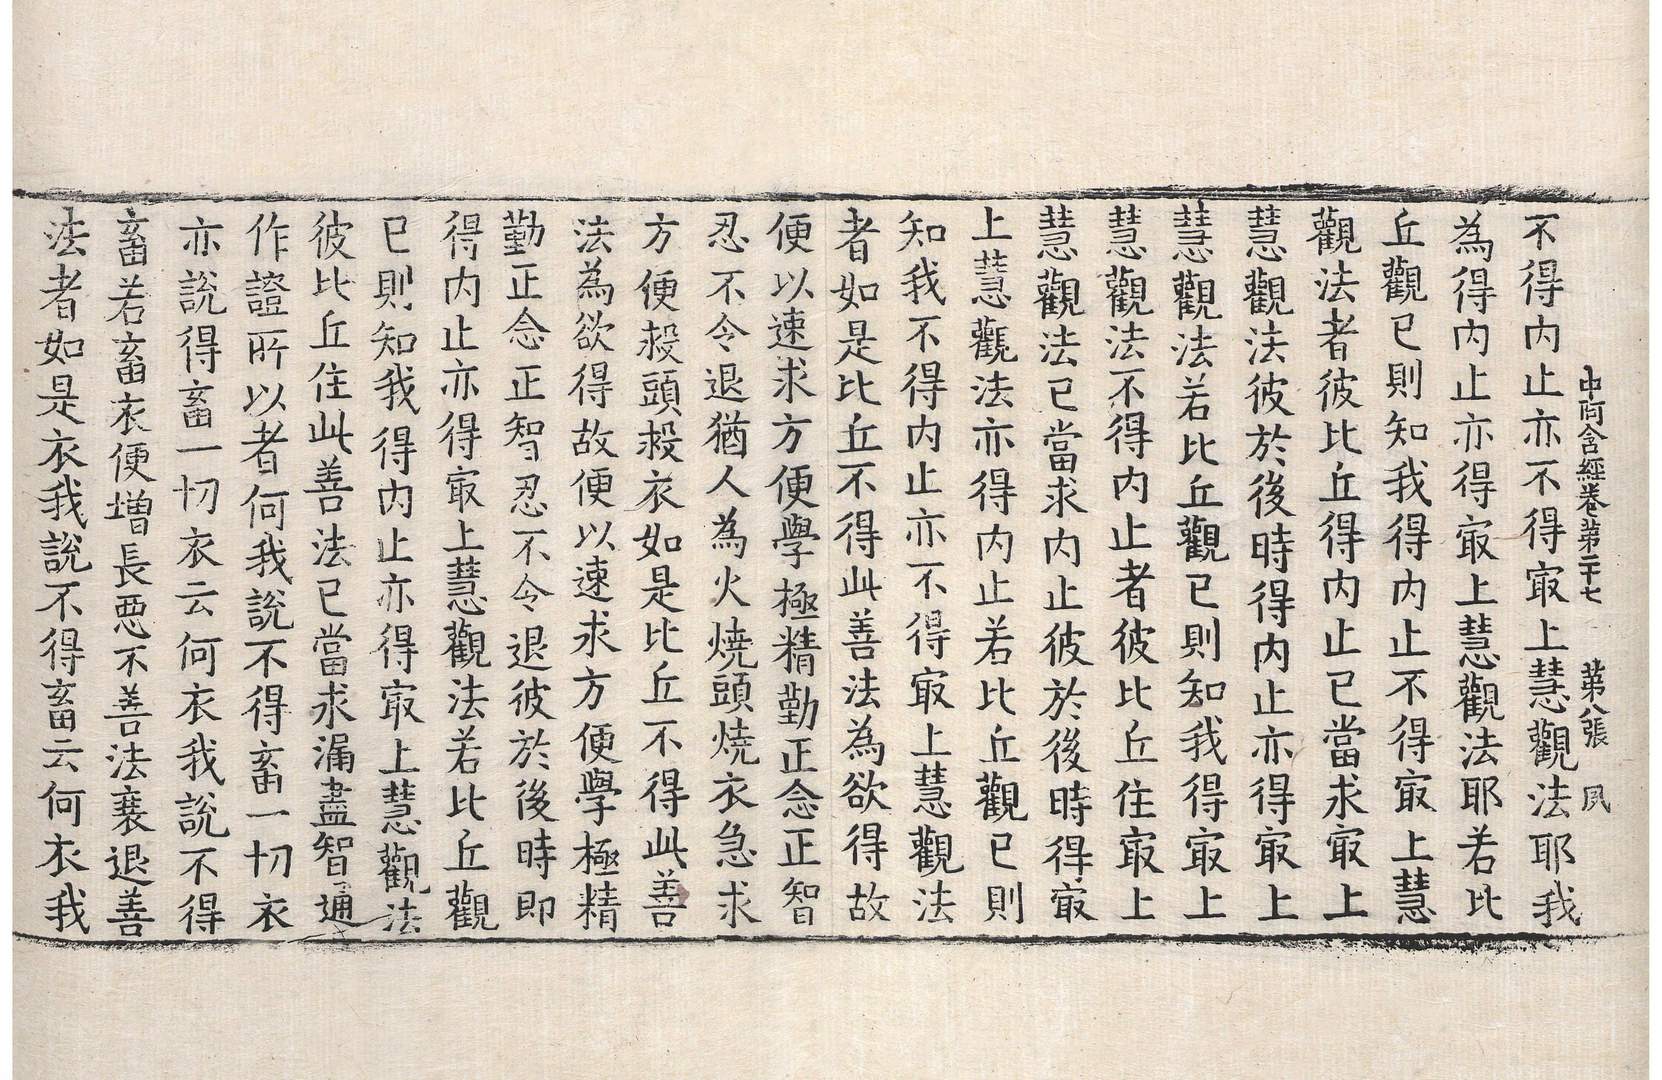 中阿含經卷第二十七　第八張　夙
不得內止亦不得㝡上慧觀法耶我
為得內止亦得㝡上慧觀法耶若比
丘觀已則知我得內止不得㝡上慧
觀法者彼比丘得內止已當求㝡上
慧觀法彼於後時得內止亦得㝡上
慧觀法若比丘觀已則知我得㝡上
慧觀法不得內止者彼比丘住㝡上
慧觀法已當求內止彼於後時得㝡
上慧觀法亦得內止若比丘觀已則
知我不得內止亦不得㝡上慧觀法
者如是比丘不得此善法為欲得故
便以速求方便學極精勤正念正智
忍不令退猶人為火燒頭燒衣急求
方便救頭救衣如是比丘不得此善
法為欲得故便以速求方便學極精
勤正念正智忍不令退彼於後時即
得內止亦得㝡上慧觀法若比丘觀
已則知我得內止亦得㝡上慧觀法
彼比丘住此善法已當求漏盡智通
作證所以者何我說不得畜一切衣
亦說得畜一切衣云何衣我說不得
畜若畜衣便增長惡不善法衰退善
法者如是衣我說不得畜云何衣我